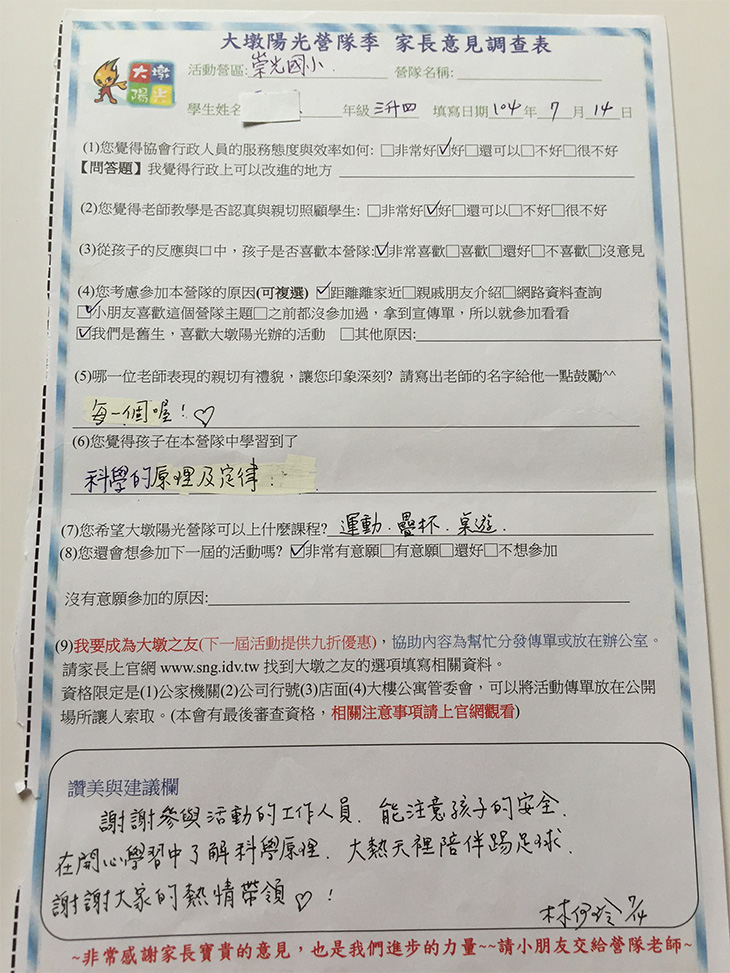 大墩陽光營隊季 家長意見調查表
大墩
陽光
活動營區:崇光國小. 營隊名稱:
學生姓名 年級 三升四 填寫日期 104 年 7 月 14 日
(1)您覺得協會行政人員的服務態度與效率如何: □非常好☑好□還可以□不好□很不好
【問答題】我覺得行政上可以改進的地方
(2)您覺得老師教學是否認真與親切照顧學生: □非常好☑好□還可以□不好□很不好
(3)從孩子的反應與口中，孩子是否喜歡本營隊:☑非常喜歡□喜歡□還好□不喜歡□沒意見
(4)您考慮參加本營隊的原因(可複選) ☑距離離家近□親戚朋友介紹□網路資料查詢
☑小朋友喜歡這個營隊主題□之前都沒參加過，拿到宣傳單，所以就參加看看
☑我們是舊生，喜歡大墩陽光辦的活動 □其他原因:
(5)哪一位老師表現的親切有禮貌，讓您印象深刻? 請寫出老師的名字給他一點鼓勵^^
每一個喔！♡
(6)您覺得孩子在本營隊中學習到了
科學的原理及定律.
(7)您希望大墩陽光營隊可以上什麼課程? 運動.疊杯.桌遊.
(8)您還會想參加下一屆的活動嗎? ☑非常有意願□有意願□還好□不想參加
沒有意願參加的原因:
(9)我要成為大墩之友(下一屆活動提供九折優惠)，協助內容為幫忙分發傳單或放在辦公室。
請家長上官網 www.sng.idv.tw 找到大墩之友的選項填寫相關資料。
資格限定是(1)公家機關(2)公司行號(3)店面(4)大樓公寓管委會，可以將活動傳單放在公開
場所讓人索取。(本會有最後審查資格，相關注意事項請上官網觀看)
讚美與建議欄
謝謝參與活動的工作人員. 能注意孩子的安全.
在開心學習中了解科學原理. 大熱天裡陪伴踢足球.
謝謝大家的熱情帶領♡！
7/14
~非常感謝家長寶貴的意見，也是我們進步的力量~~請小朋友交給營隊老師~